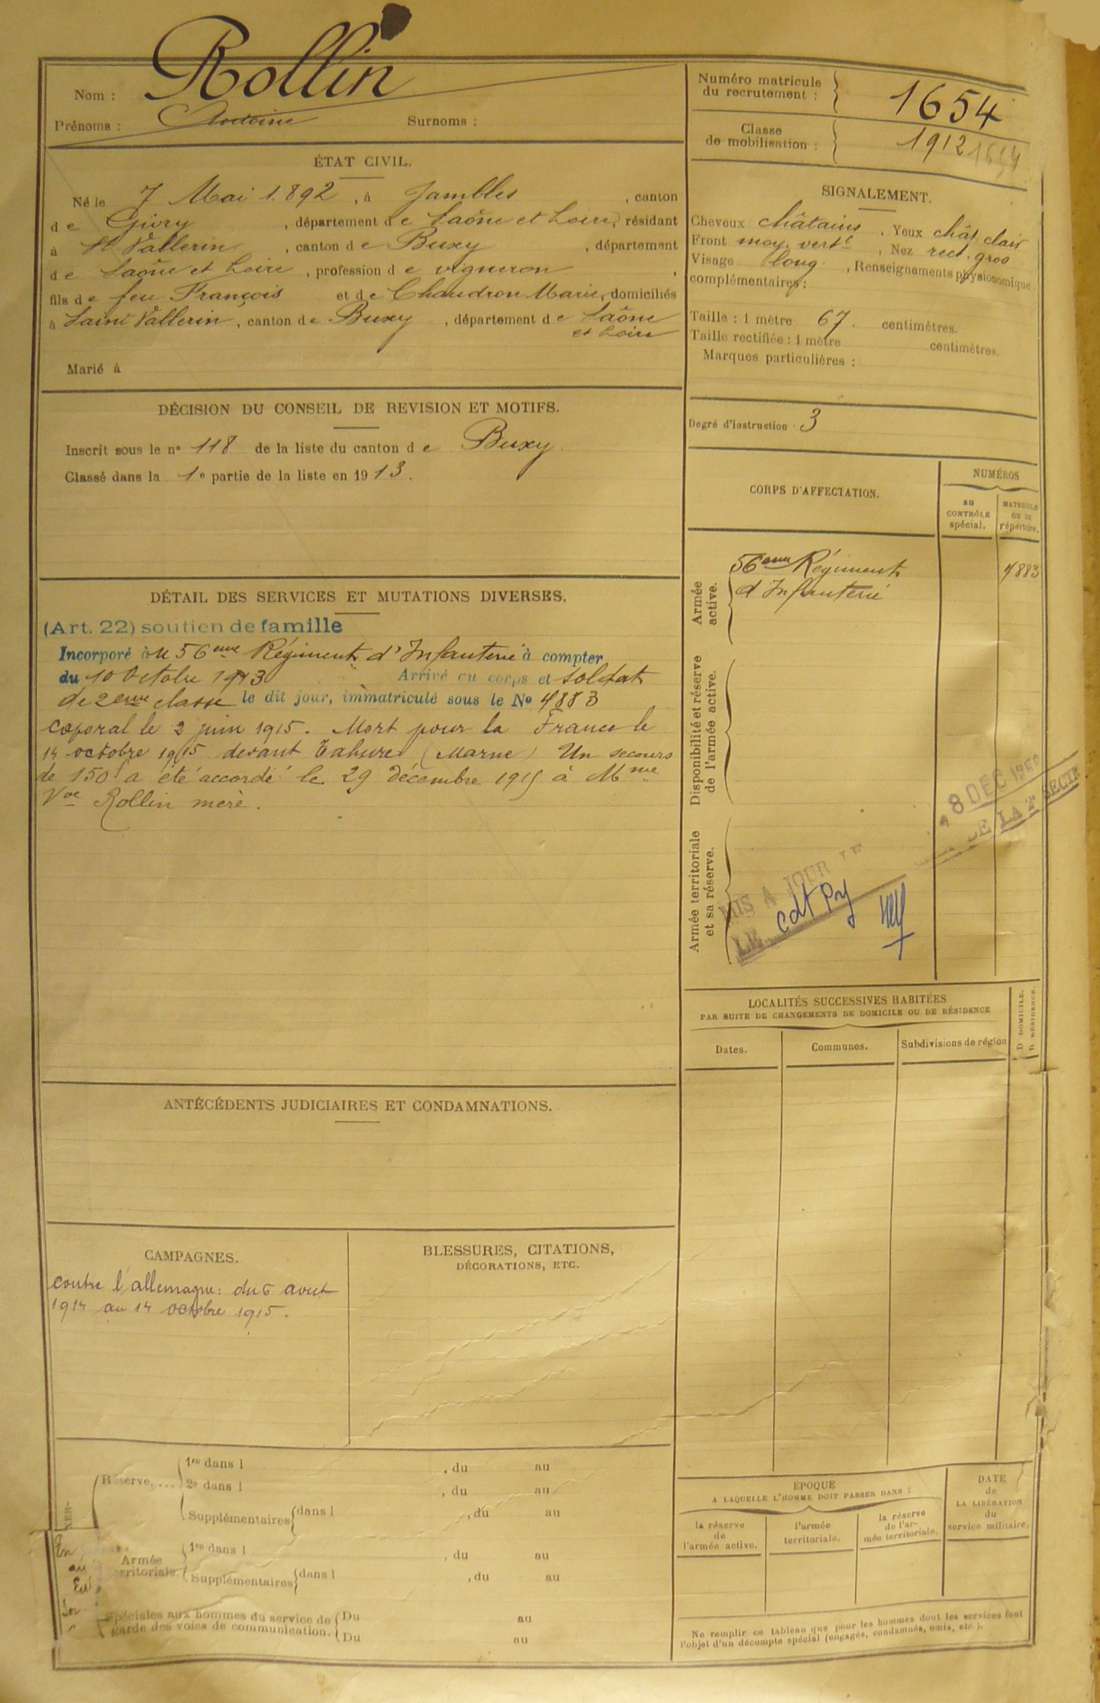 Nom : Rollin
Prénoms : Antoine Surnoms :
Numéro matricule du recrutement : 1654
Classe de mobilisation : 1912 1654
ÉTAT CIVIL.
Né le 7 Mai 1892, à Jambles, canton
de Givry, département de Saône et Loire, résidant
à St Vallerin, canton de Buxy, département
de Saône et Loire, profession de vigneron,
fils de feu François et de Chaudron Marie, domiciliés
à Saint Vallerin, canton de Buxy, département de Saône
et Loire
Marié à
SIGNALEMENT.
Cheveux châtains. Yeux chât clair
Front moy. vert., Nez rect. gros
Visage long, Renseignements physionomique
complémentaires :
Taille : 1 mètre 67. centimètres.
Taille rectifiée : 1 mètre centimètres.
Marques particulières :
Degré d'instruction 3
DÉCISION DU CONSEIL DE REVISION ET MOTIFS.
Inscrit sous le no 118 de la liste du canton de Buxy.
Classé dans la 1e partie de la liste en 1913.
CORPS D'AFFECTATION.
NUMÉROS
au CONTRÔLE spécial.
MATRICULE ou au répertoire.
Armée active.
56eme Régiment 4883
d'Infanterie
Disponibilité et réserve de l'armée active.
Armée territoriale et sa réserve.
MIS A JOUR LE
8 DEC
LE cdt
DÉTAIL DES SERVICES ET MUTATIONS DIVERSES.
(Art. 22) soutien de famille
Incorporé au 56eme Régiment d'Infanterie à compter
du 10 Octobre 1913 Arrivé au corps et soldat
de 2eme classe le dit jour, immatriculé sous le No 4883
Caporal le 2 juin 1915. Mort pour la France le
14 octobre 1915 devant Tahure (Marne) Un secours
de 150f a été accordé le 29 décembre 1915 à Mme
Vve Rollin mère.
LOCALITÉS SUCCESSIVES HABITÉES
PAR SUITE DE CHANGEMENTS DE DOMICILE OU DE RÉSIDENCE
Dates. Communes. Subdivisions de région
D. DOMICILE.
R. RÉSIDENCE.
ANTÉCÉDENTS JUDICIAIRES ET CONDAMNATIONS.
CAMPAGNES.
contre l'allemagne: du 6 avut
1914 au 14 octobre 1915.
BLESSURES, CITATIONS,
DÉCORATIONS, ETC.
Réserve,....
1re dans l , du au
2e dans l , du au
Supplémentaires dans l , du au
Armée territoriale.
1re dans l , du au
Supplémentaires dans l , du au
Spéciales aux hommes du service de garde des voies de communication.
Du au
Du au
ÉPOQUE
A LAQUELLE L'HOMME DOIT PASSER DANS :
la réserve de l'armée active.
l'armée territoriale.
la réserve de l'armée territoriale.
DATE
de
LA LIBÉRATION
du
service militaire.
Ne remplir ce tableau que pour les hommes dont les services font
l'objet d'un décompte spécial (engagés, condamnés, omis, etc.).